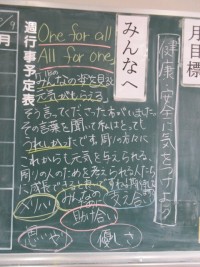 月目標
健康・安全に気をつけよう
みんなへ
週行事予定表
月
One for all
All for one
みんなの姿を見
元気がもらえる
そう言ってくださった方がいました。
その言葉を聞いて私はとっても
うれしかったです。周りの方々に
これからも元気を与えられる、
周りの人のために考えられる人たち
に成長
メリハリ
みんなの
支え合い
助け合い
思いやり
優しさ